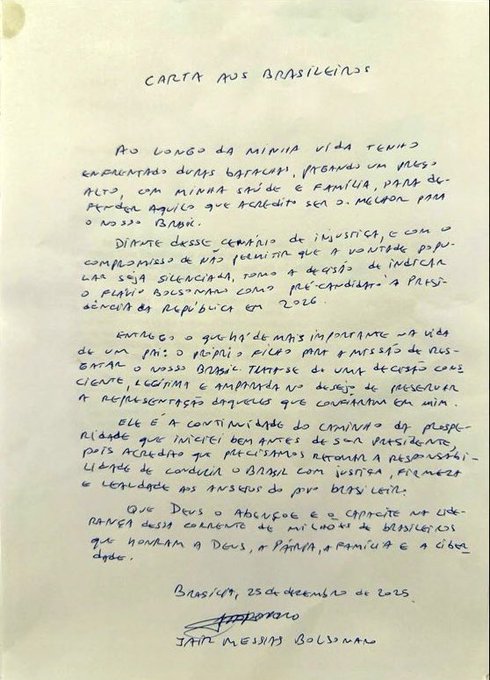 CARTA AOS BRASILEIROS
AO LONGO DA MINHA VIDA TENHO
ENFRENTADO DURAS BATALHAS, PAGANDO UM PREÇO
ALTO, COM MINHA SAÚDE E FAMÍLIA, PARA DE-
FENDER AQUILO QUE ACREDITO SER O MELHOR PARA
O NOSSO BRASIL.
DIANTE DESSE CENÁRIO DE INJUSTIÇA, E COM O
COMPROMISSO DE NÃO PERMITIR QUE A VONTADE POPU-
LAR SEJA SILENCIADA, TOMO A DECISÃO DE INDICAR
O FLÁVIO BOLSONARO COMO PRÉ-CANDIDATO À PRESI-
DÊNCIA DA REPÚBLICA EM 2026.
ENTREGO O QUE HÁ DE MAIS IMPORTANTE NA VIDA
DE UM PAI: O PRÓPRIO FILHO PARA A MISSÃO DE RES-
GATAR O NOSSO BRASIL. TRATA-SE DE UMA DECISÃO CONS-
CIENTE, LEGÍTIMA E AMPARADA NO DESEJO DE PRESERVAR
A REPRESENTAÇÃO DAQUELES QUE CONFIARAM EM MIM.
ELE É A CONTINUIDADE DO CAMINHO DA PROSPE-
RIDADE QUE INICIEI BEM ANTES DE SER PRESIDENTE,
POIS ACREDITO QUE PRECISAMOS RETOMAR A RESPONSABI-
LIDADE DE CONDUZIR O BRASIL COM JUSTIÇA, FIRMEZA
E LEALDADE AOS ANSEIOS DO POVO BRASILEIR.
QUE DEUS O ABENÇOE E O CAPACITE NA LIDE-
RANÇA DESSA CORRENTE DE MILHÕES DE BRASILEIROS
QUE HONRAM A DEUS, A PÁTRIA, A FAMÍLIA E A LIBER-
DADE.
BRASÍLIA, 25 DE DEZEMBRO DE 2025
JAIR MESSIAS BOLSONARO